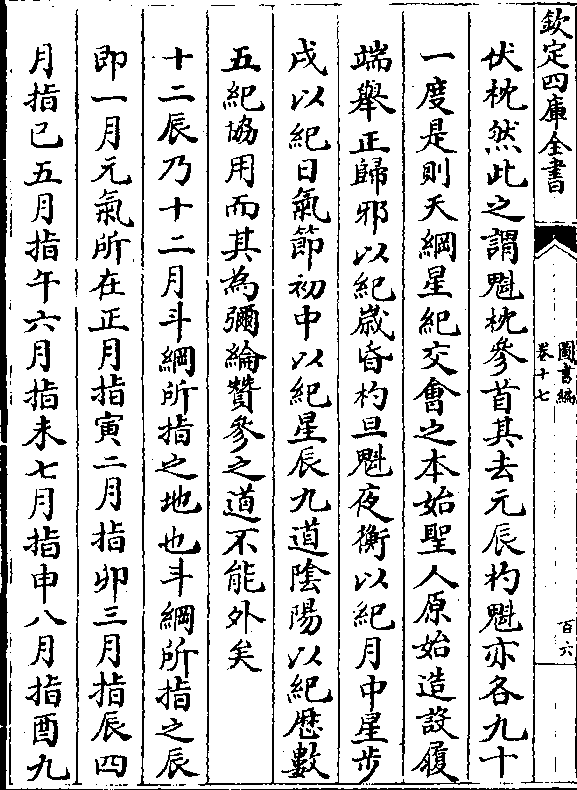 欽定四庫全書
圖書編
卷十七
百六
伏枕然此之謂魁枕參首其去元辰杓魁亦各九十
一度是則天綱星紀交會之本始聖人原始造設履
端舉正歸邪以紀歲昏杓旦魁夜衡以紀月中星步
戌以紀日氣節初中以紀星辰九道陰陽以紀歴數
五紀協用而其為彌綸贊參之道不能外矣
十二辰乃十二月斗綱所指之地也斗綱所指之辰
即一月元氣所在正月指寅二月指卯三月指辰四
月指巳五月指午六月指未七月指申八月指酉九